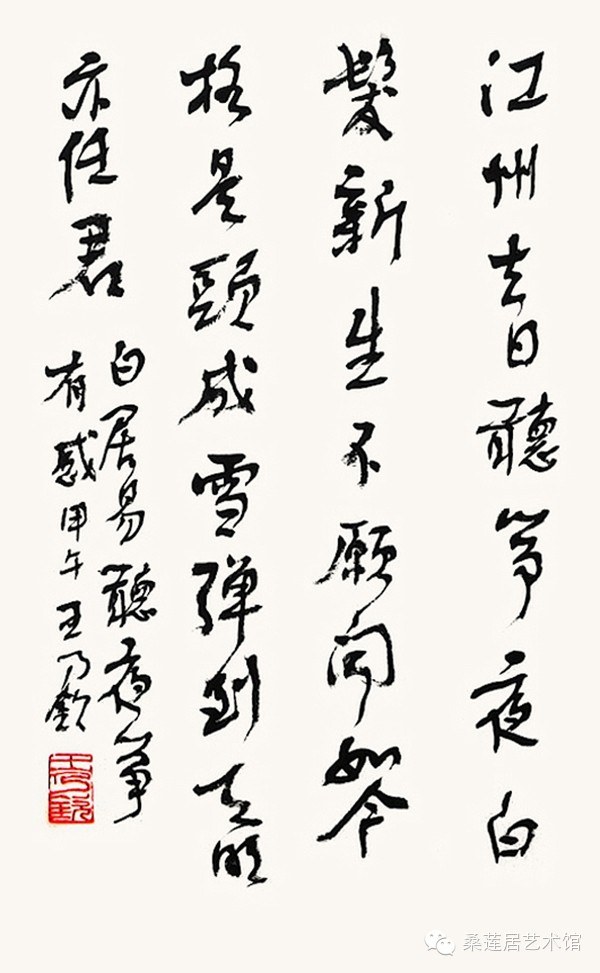 江州去日聽箏夜白
髮新生不願聞如今
格是頭成雪彈到天明
亦任君
白居易聽夜箏
有感甲午王乃欽
王乃欽
桑莲居艺术馆